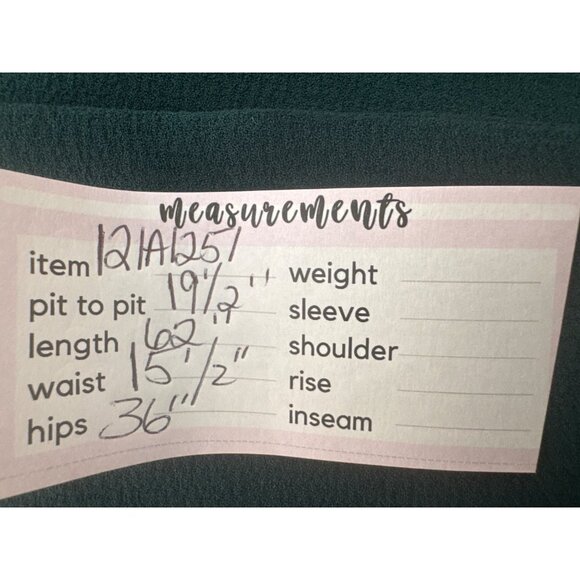 measurements
item 121A1251
pit to pit 19 1/2"
length 62"
waist 15 1/2"
hips 36"
weight
sleeve
shoulder
rise
inseam